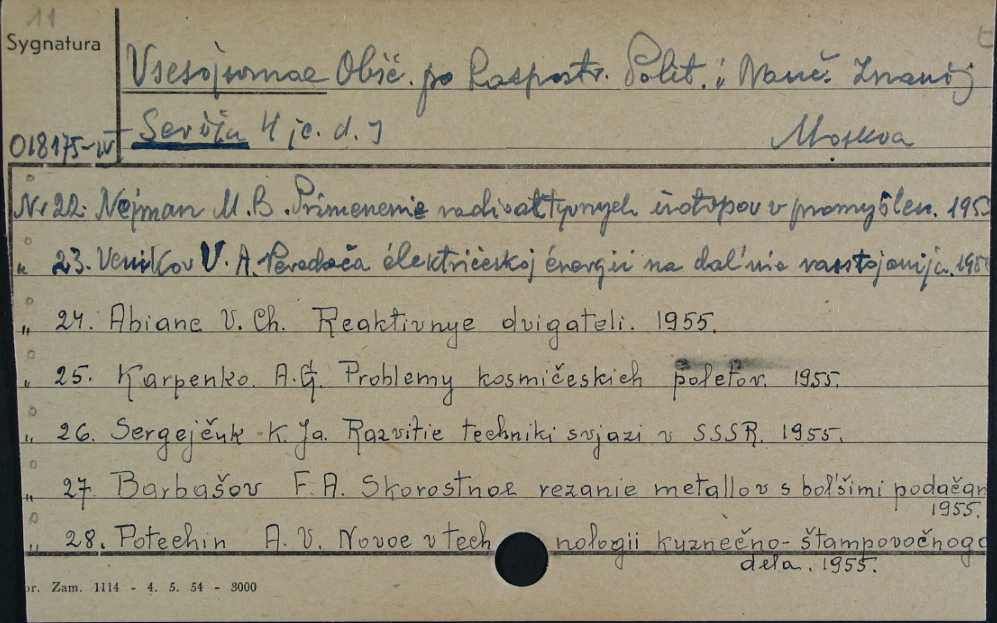 11
Sygnatura
Vsesojuznae Obšč. po Raspostr. Polit. i Nauč. Znanij
018175-IV Serija 4 jc. d. J Moskva
Nr 22. Nejman M. B. Primenenie radioaktyvnych izotopov v promyšlen. 1953
" 23. Venikov V. A. Peredača électričeskoj énergii na dal'nie rasstojanija. 195
" 24. Abianc V. Ch. Reaktivnye dvigateli. 1955.
" 25. Karpenko. A. G. Problemy kosmičeskich poletov. 1955.
" 26. Sergejčuk K. Ja. Razvitie techniki svjazi v SSSR. 1955.
" 27. Barbašov F. A. Skorostnoe rezanie metallov s bol'šimi podačam
1955.
" 28. Potechin A. V. Novoe v tech nologii kuznečno-štampovočnogo
dela. 1955.
or. Zam. 1114 - 4. 5. 54 - 3000